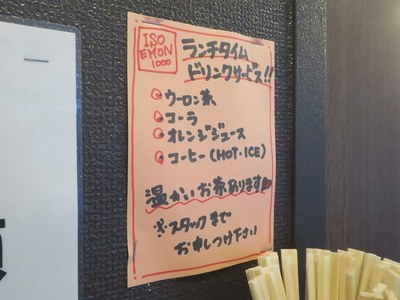 ISO
EMON
1000
ランチタイム
ドリンクサービス!!
ウーロン茶
コーラ
オレンジジュース
コーヒー(HOT・ICE)
温かいお茶あります
※スタッフまで
お申しつけ下さい